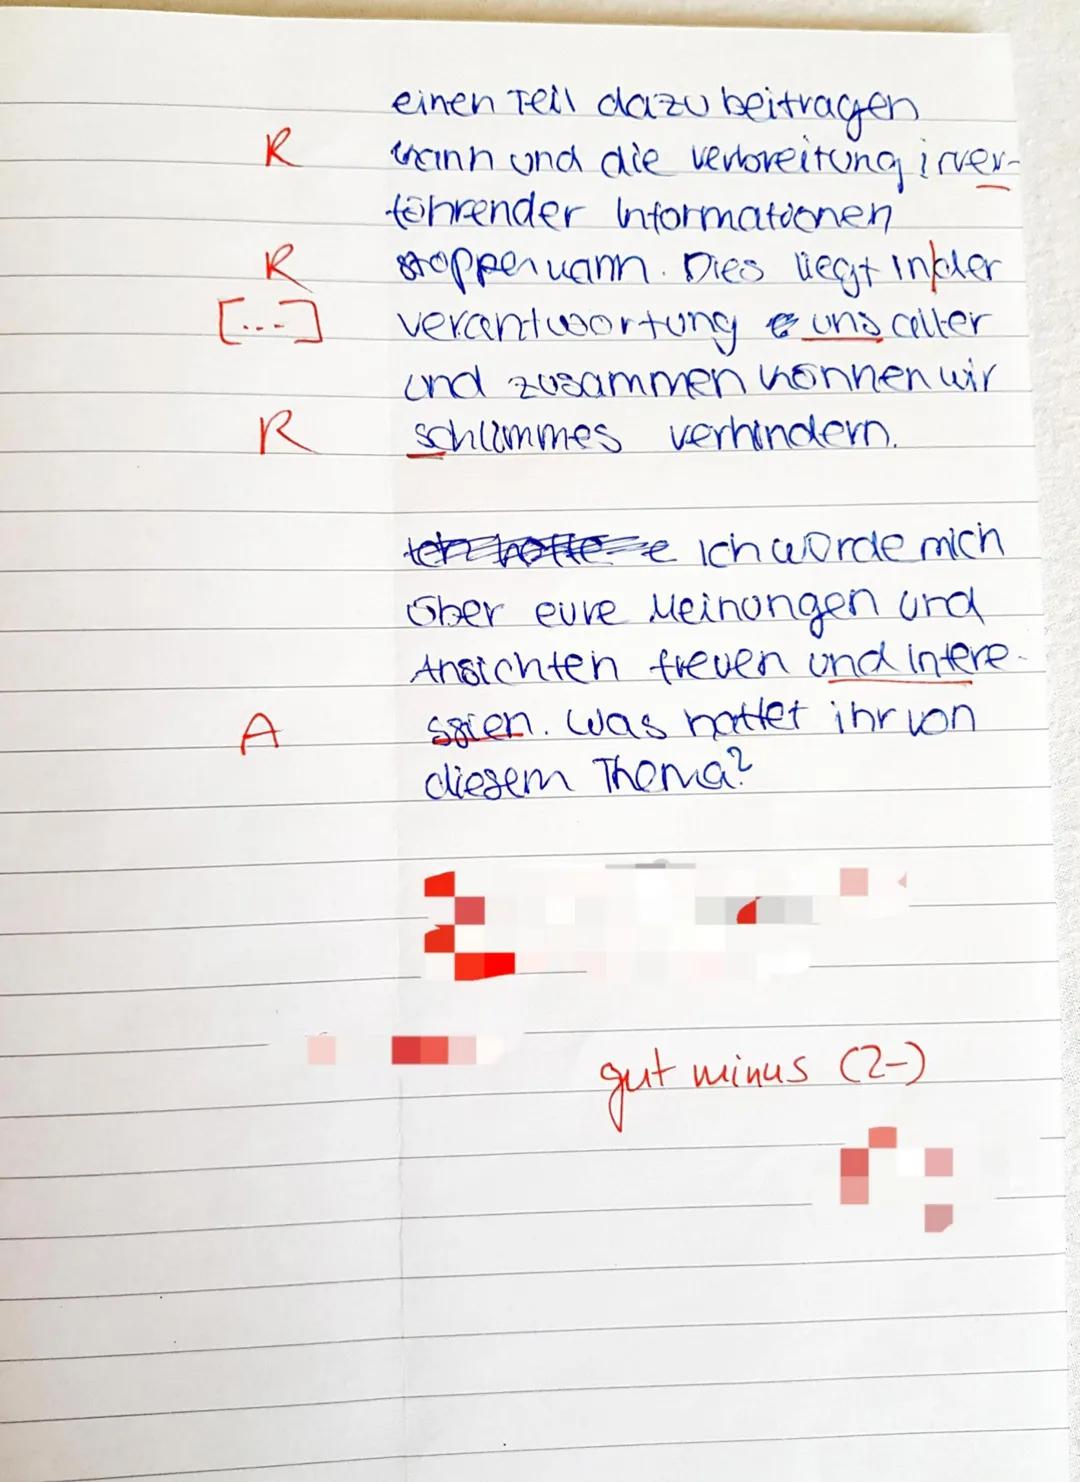 einen Teil dazu beitragen
R kann und die verbreitung irrver-
führender Informationen
R stoppen kann. Dies liegt in der
[...] verantwortung uns aller
und zusammen können wir
R schlimmes verhindern.
Ich hoffe e Ich würde mich
über eure Meinungen und
Ansichten freuen und intere-
A ssien. Was haltet ihr von
diesem Thema?
gut minus (2-)